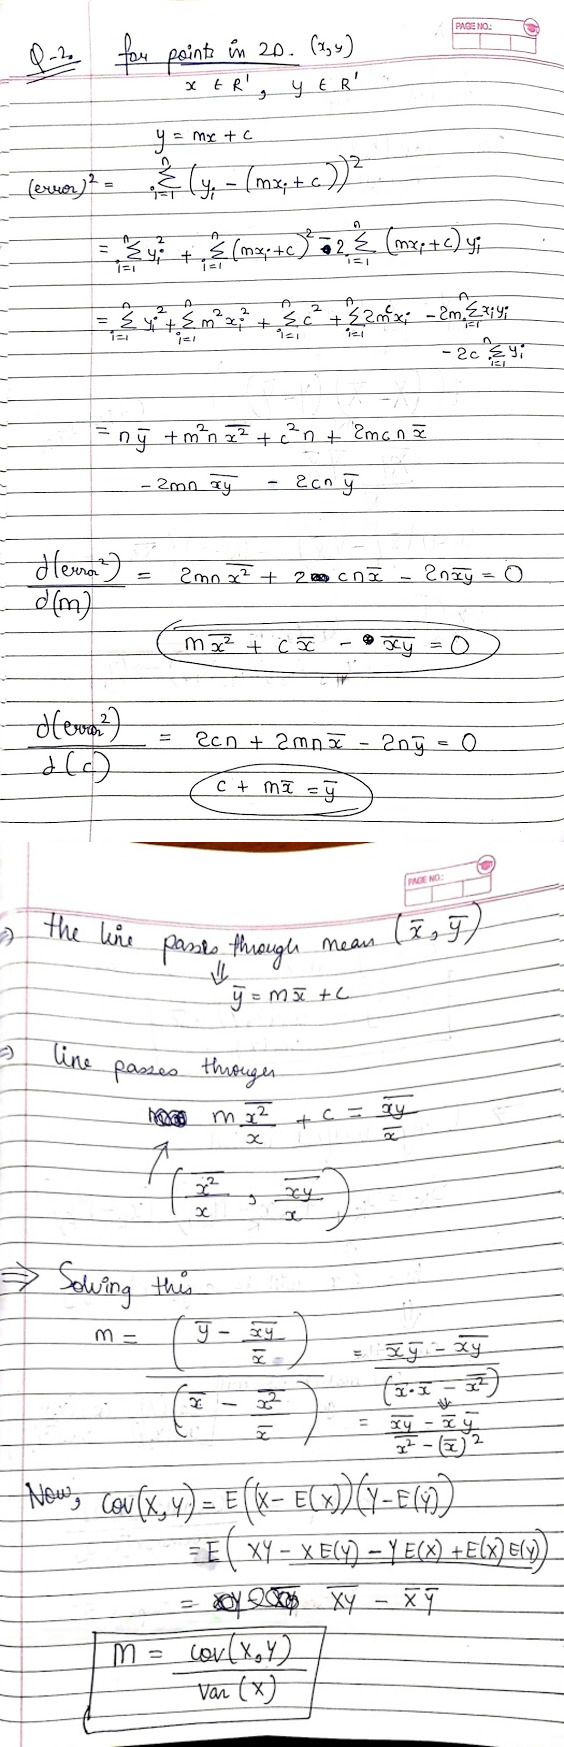 PAGE NO.:
Q-2. for points in 2D. (x,y)
x ∈ R¹, y ∈ R¹
y = mx + c
(error)² = Σ_{i=1}^{n} (y_i - (mx_i + c))²
= Σ_{i=1}^{n} y_i² + Σ_{i=1}^{n} (mx_i + c)² - 2 Σ_{i=1}^{n} (mx_i + c) y_i
= Σ_{i=1}^{n} y_i² + Σ_{i=1}^{n} m²x_i² + Σ_{i=1}^{n} c² + Σ_{i=1}^{n} 2mcx_i - 2m Σ_{i=1}^{n} x_i y_i
- 2c Σ_{i=1}^{n} y_i
= n y̅ + m²n \overline{x²} + c²n + 2mcn x̅
- 2mn \overline{xy} - 2cn y̅
d(error²)/d(m) = 2mn \overline{x²} + 2cn x̅ - 2n \overline{xy} = 0
m \overline{x²} + c x̅ - \overline{xy} = 0
d(error²)/d(c) = 2cn + 2mn x̅ - 2n y̅ = 0
c + m x̅ = y̅
PAGE NO.:
⇒ the line passes through mean (x̅, y̅)
⇓
y̅ = m x̅ + c
⇒ line passes through
m \overline{x²}/x + c = \overline{xy}/x̅
(\overline{x²}/x, \overline{xy}/x)
⇒ Solving this
m = (y̅ - \overline{xy}/x̅) / (x̅ - \overline{x²}/x̅) = (x̅ y̅ - \overline{xy}) / (x̅·x̅ - \overline{x²})
= (\overline{xy} - x̅ y̅) / (\overline{x²} - (x̅)²)
Now, cov(X,Y) = E((X - E(X))(Y - E(Y))
= E(XY - XE(Y) - YE(X) + E(X)E(Y))
= \overline{XY} - X̅ Y̅
m = cov(X,Y) / Var(X)